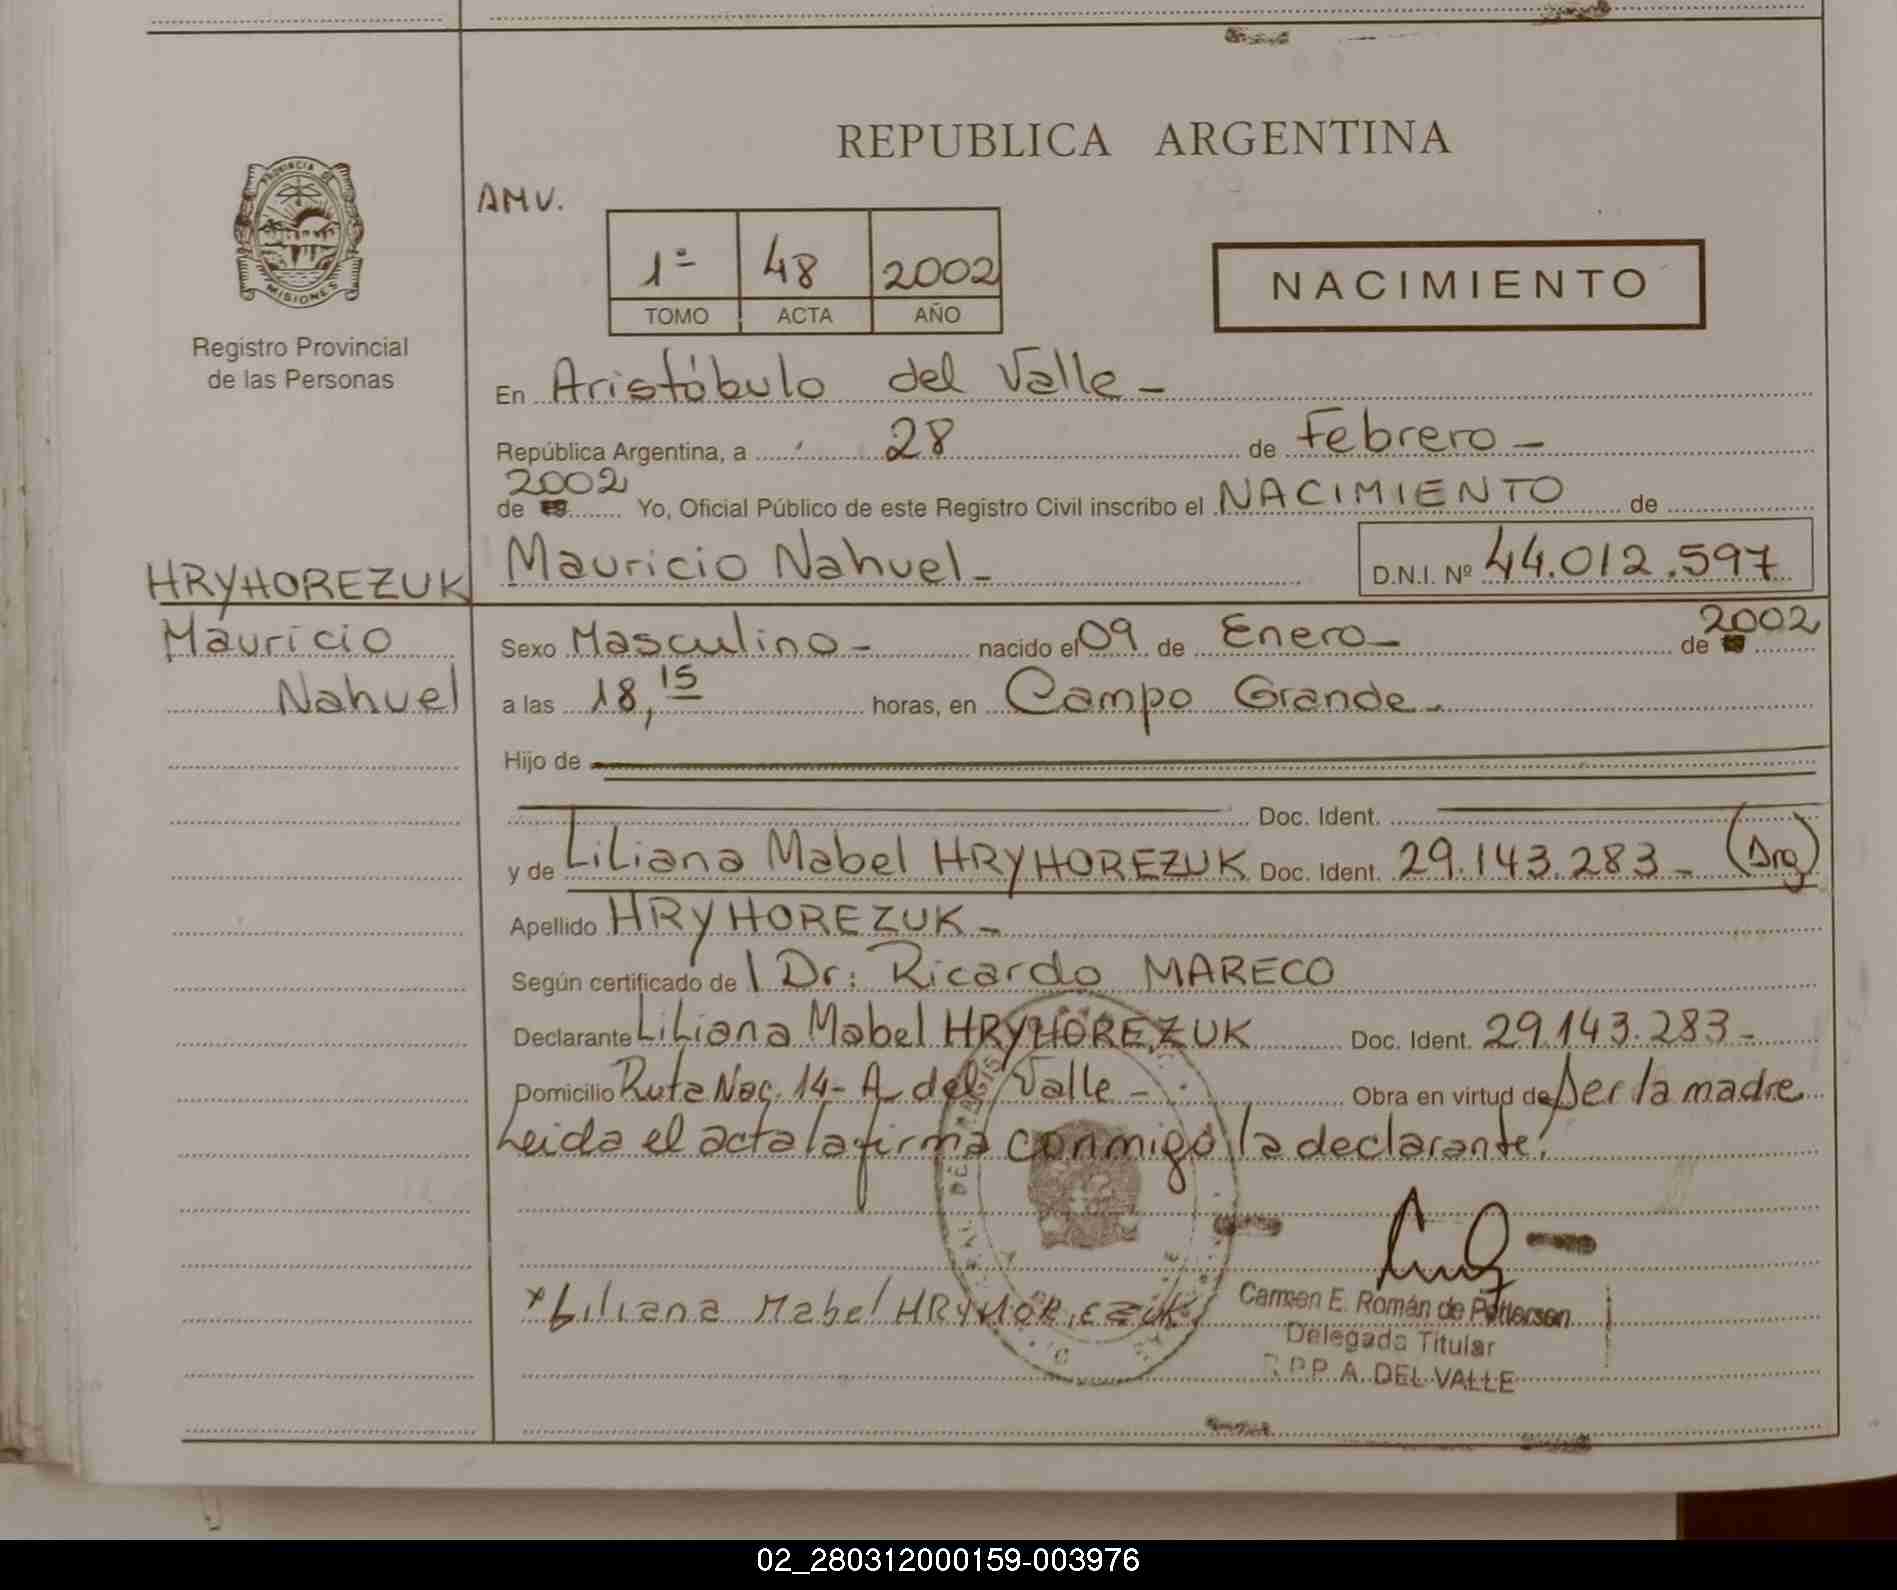 REPUBLICA ARGENTINA
PROVINCIA DE
MISIONES
Registro Provincial
de las Personas
AMV.
1º 48 2002
TOMO ACTA AÑO
NACIMIENTO
En Aristóbulo del Valle -
República Argentina, a 28 de Febrero -
2002
de Yo, Oficial Público de este Registro Civil inscribo el NACIMIENTO de
Mauricio Nahuel - D.N.I. Nº 44.012.597
HRYHOREZUK
Mauricio
Nahuel
Sexo Masculino - nacido el 09 de Enero - de 2002
a las 18,15 horas, en Campo Grande -
Hijo de
Doc. Ident.
y de Liliana Mabel HRYHOREZUK Doc. Ident. 29.143.283 - (Arg)
Apellido HRYHOREZUK -
Según certificado de l Dr: Ricardo MARECO
Declarante Liliana Mabel HRYHOREZUK Doc. Ident. 29.143.283 -
Domicilio Ruta Nac. 14 - A del Valle - Obra en virtud de ser la madre
Leida el acta la firma conmigo la declarante.
Liliana Mabel HRYHOREZUK
Carmen E. Román de Pettersen
Delegada Titular
R.P.P. A. DEL VALLE
02_280312000159-003976